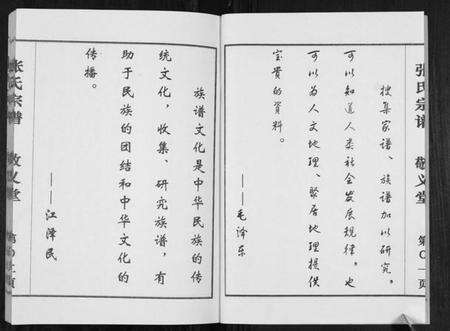 张氏宗谱
敬义堂
第〇一页
搜集家谱、族谱加以研究,
可以知道人类社会发展规律,也
可以为人文地理、聚居地理提供
宝贵的资料。
——毛泽东
族谱文化是中华民族的传
统文化,收集、研究族谱,有
助于民族的团结和中华文化的
传播。
——江泽民
张氏宗谱
敬义堂